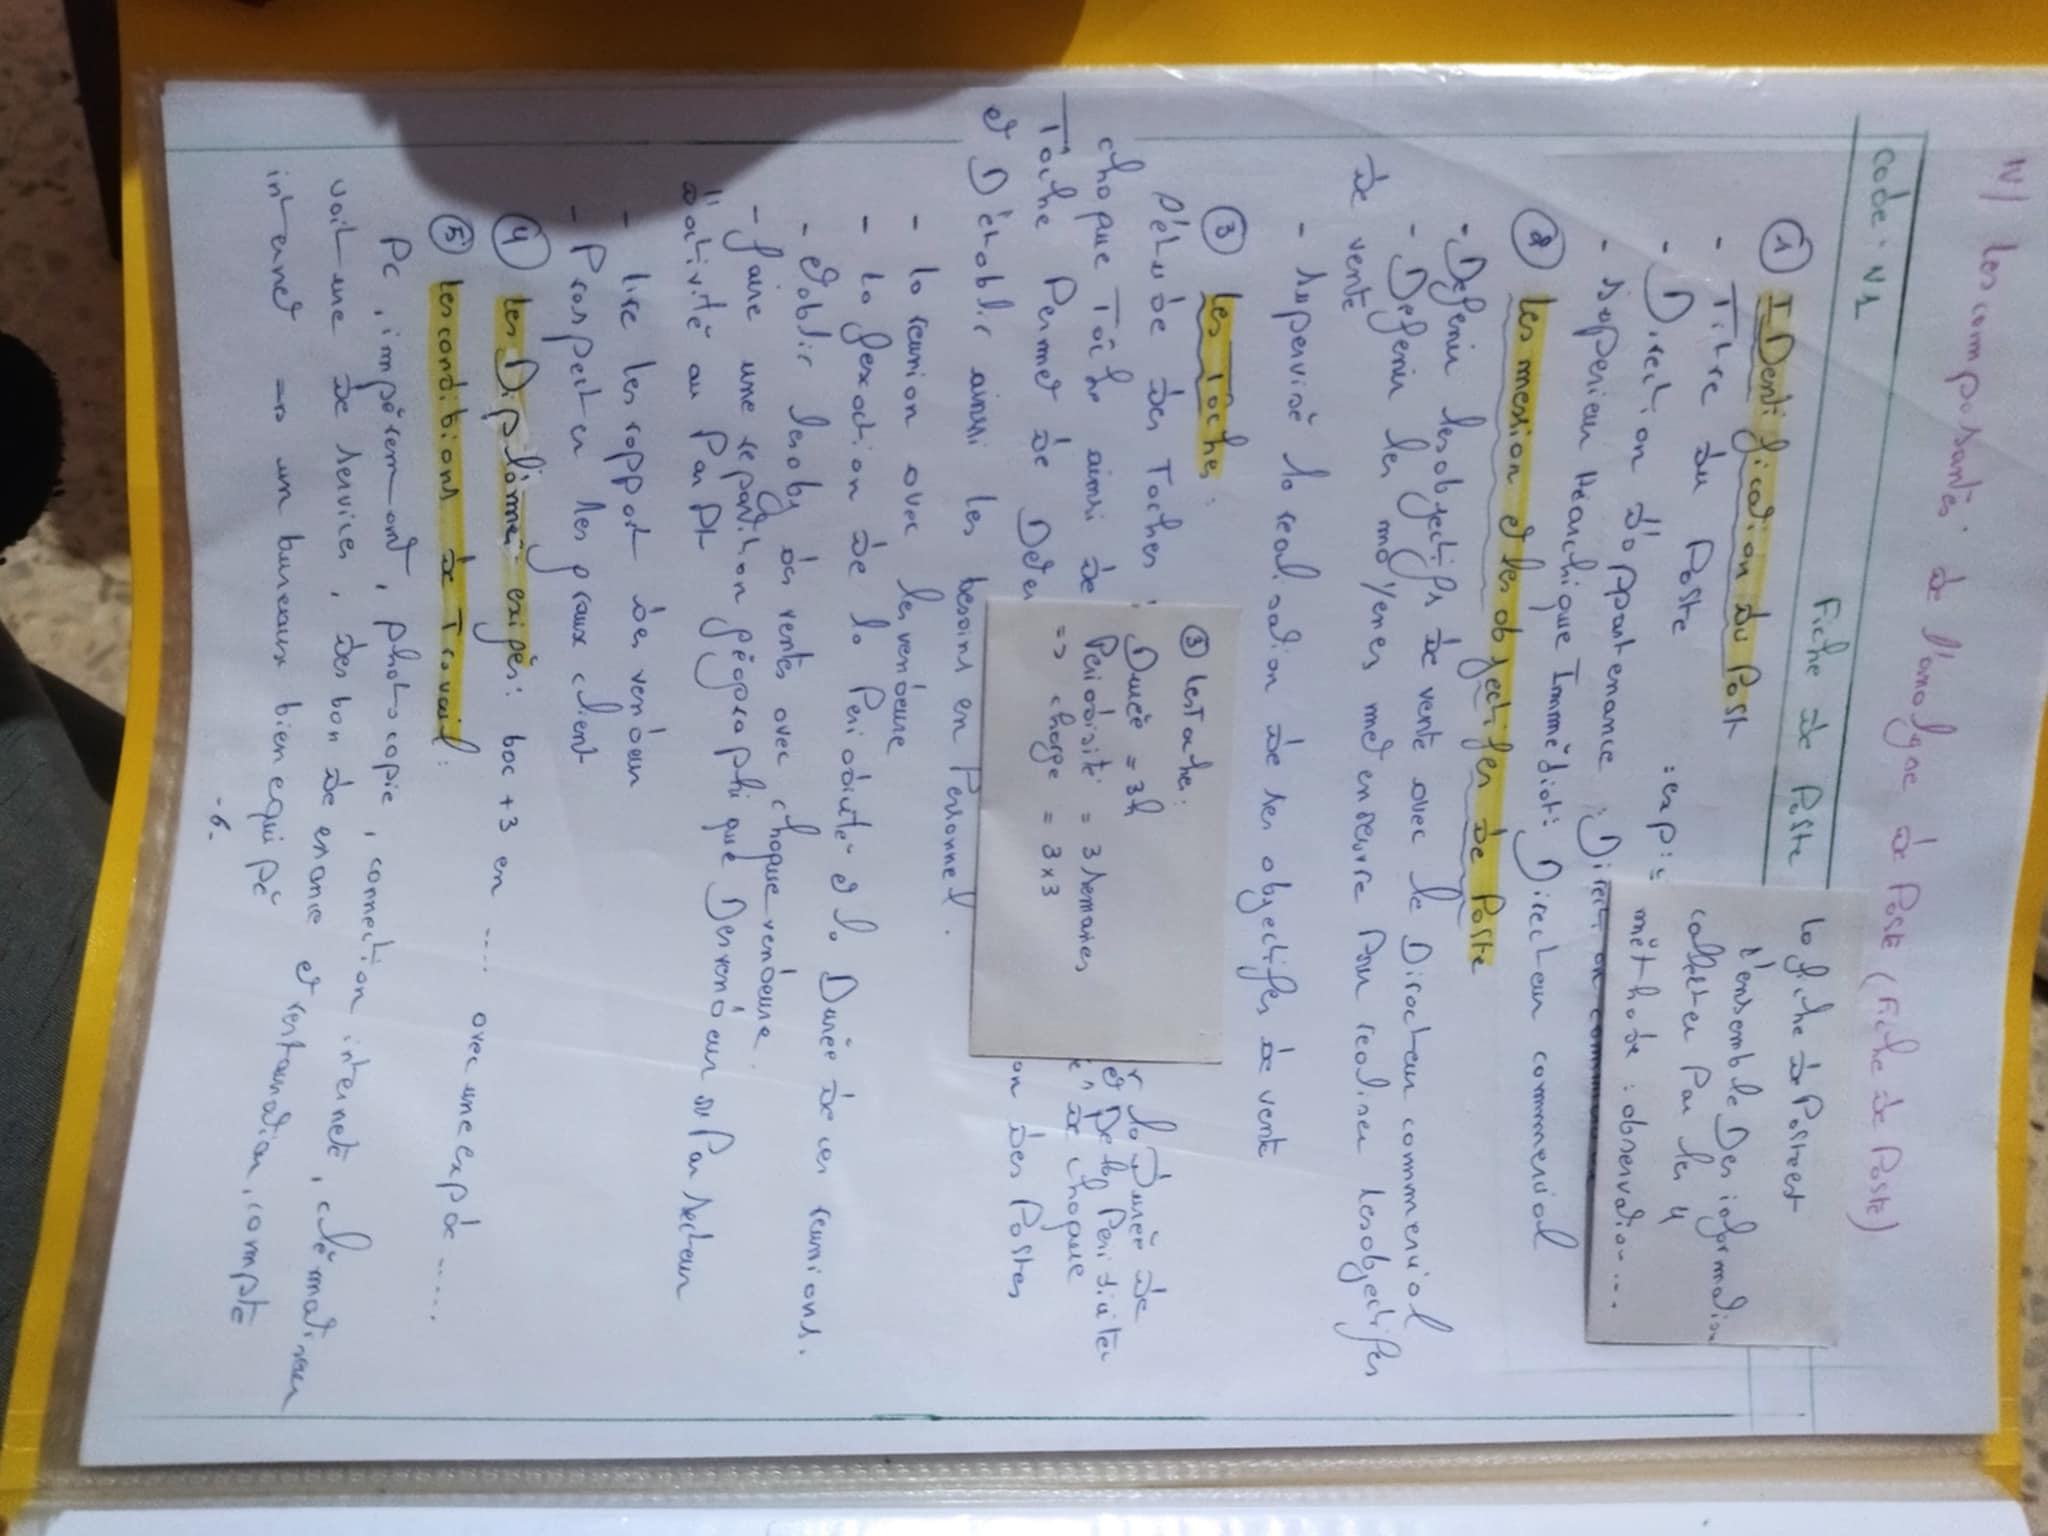 IV/ Les composantés de l'analyse de Poste (Fiche de Poste)
code : N1
Fiche de Poste
la fiche de Poste est
l'ensemble Des information
collecter Par les 4
méthode : observation...
① IDentification du Post
- Titre du Poste : exp :
- Direction d'appartenance : Direction commercial
- superieur Hearchique Immédiat : Directeur commercial
② les mession et les objectifes de Poste
- Defenir les objectifs de vente avec le Directeur commercial
- Defenir les moyenes met en oeuvre Pour realiser les objectifes
de vente
- supervisé la realisation de ses objectifes de vente
③ les Tâches :
③ les Tache :
Durée = 3h
Periodisité = 3 semaines
=> charge = 3x3
l'étude des Taches : r la Durée de
chaque Tâche ainsi de et De la Peridicité
Tâche Permet de Deter de chaque
on des Postes
et D'établir ainsi les besoins en Personnel.
- la reunion avec les vendeure
- la fexaction de la Periodicité et la Durée de ces reunions.
- etablir les obj des ventes avec chaque vendeure
- faire une repartition géographique Des vendeur ou Par secteur
d'activité au Par Pt
- lire les rapport des vendeur
- Prospecter les graux client
④ les Diplômei exigés : bac +3 en .... avec une exp de .....
⑤ les conditions de Travail :
Pc, impérement, photocopie, connection internete,
voiture de services, des bon de et restauration, compte
internet => un bureaux bien equipé
-6-